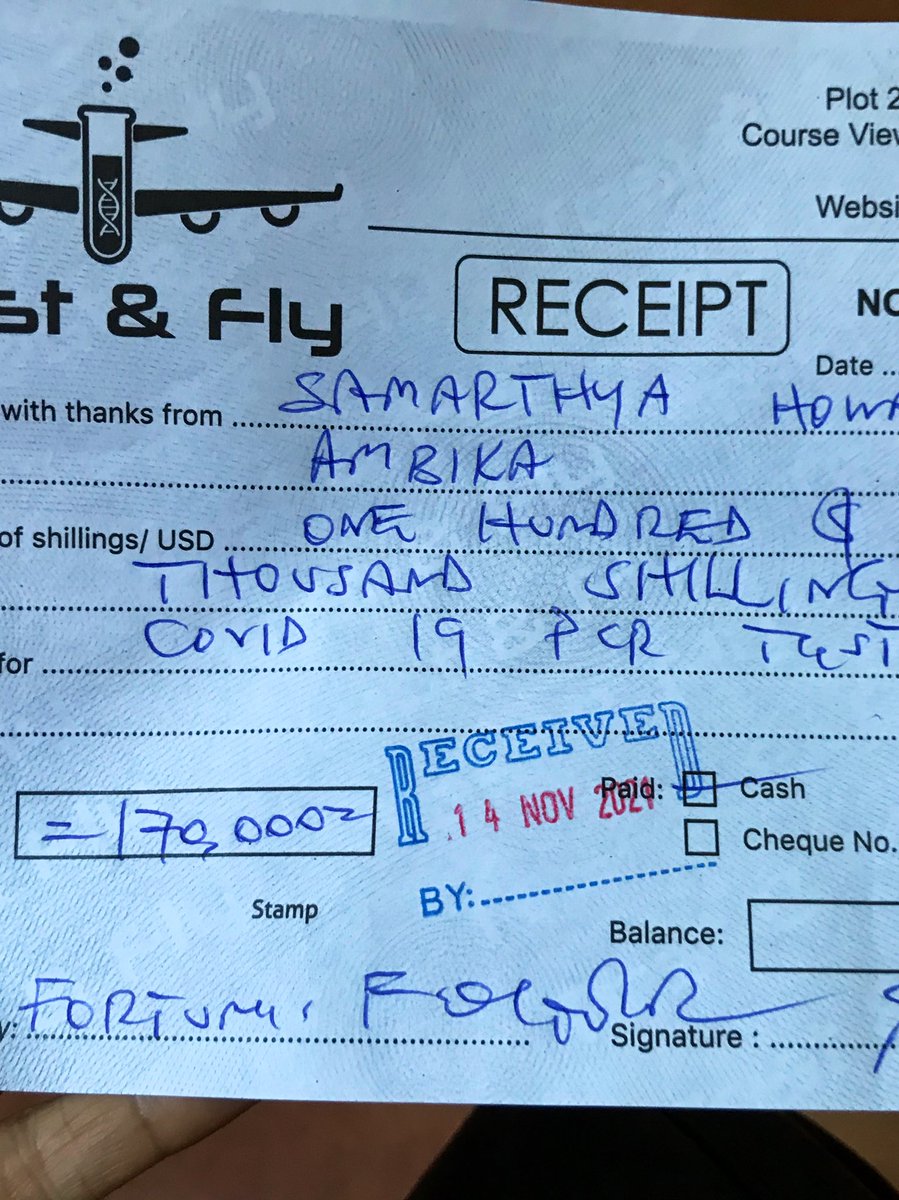 Plot 2
Course View
Websi
st & Fly
RECEIPT
NO
Date ..
with thanks from SAMARTHYA HOWA
AMBIKA
of shillings/ USD ONE HUNDRED &
THOUSAND SHILLING
for COVID 19 PCR TEST
RECEIVED
14 NOV 2021
Paid: Cash
=170,000=
Cheque No.
BY:
Stamp
Balance:
y: FORTUNE.
Signature :